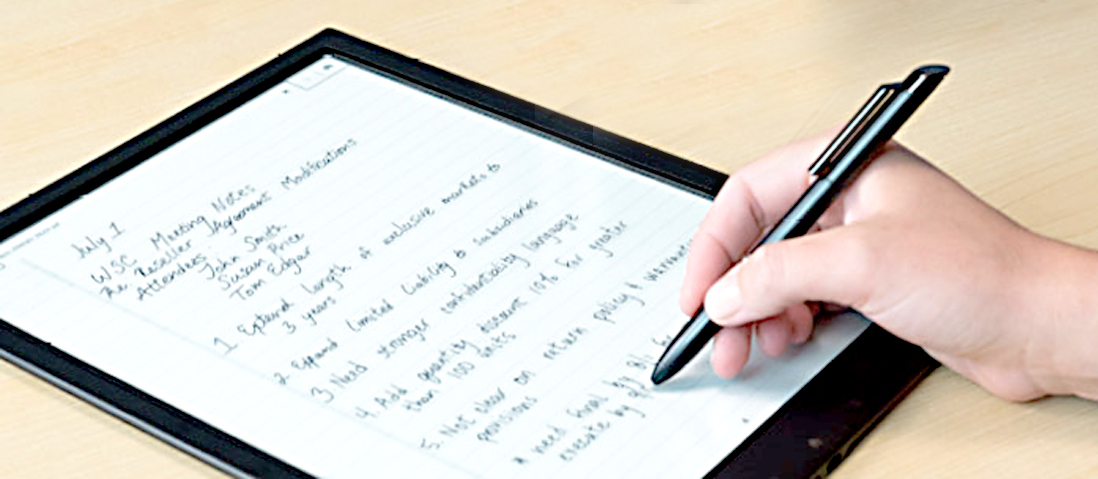 July 1
WSC Meeting Notes
Re: Reseller Agreement Modifications
Attendees: John Smith
Susan Price
Tom Edgar
1. Extend length of exclusive markets to
3 years
2. Expand Limited Liability to subsidiaries
3. Need stronger confidentiality language
4. Add quantity discount 10% for greater
than 100 units
5. Not clear on return policy &
provisions
* need final
execute by